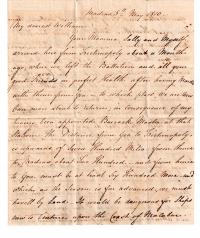 Madras 5th May 1810
My dearest William
Your Mamma, Sally and Myself
arrived here from Trichinopoly about a Month
ago, when we left the Battalion and all your
friends in perfect Health after having been
with them
than soon to return, in consequence of my
having been appointed Barrack Master at that
Station. The Distance from Goa to Trichinopoly
is upwards of Seven Hundred Miles, from thence
to Madras about Two Hundred, and from hence
to Goa must be at least Six Hundred more, and
which as the Season is far advanced, we must
travel by Land. It would be dangerous for Ships
now to venture upon the Coast of Malabar.